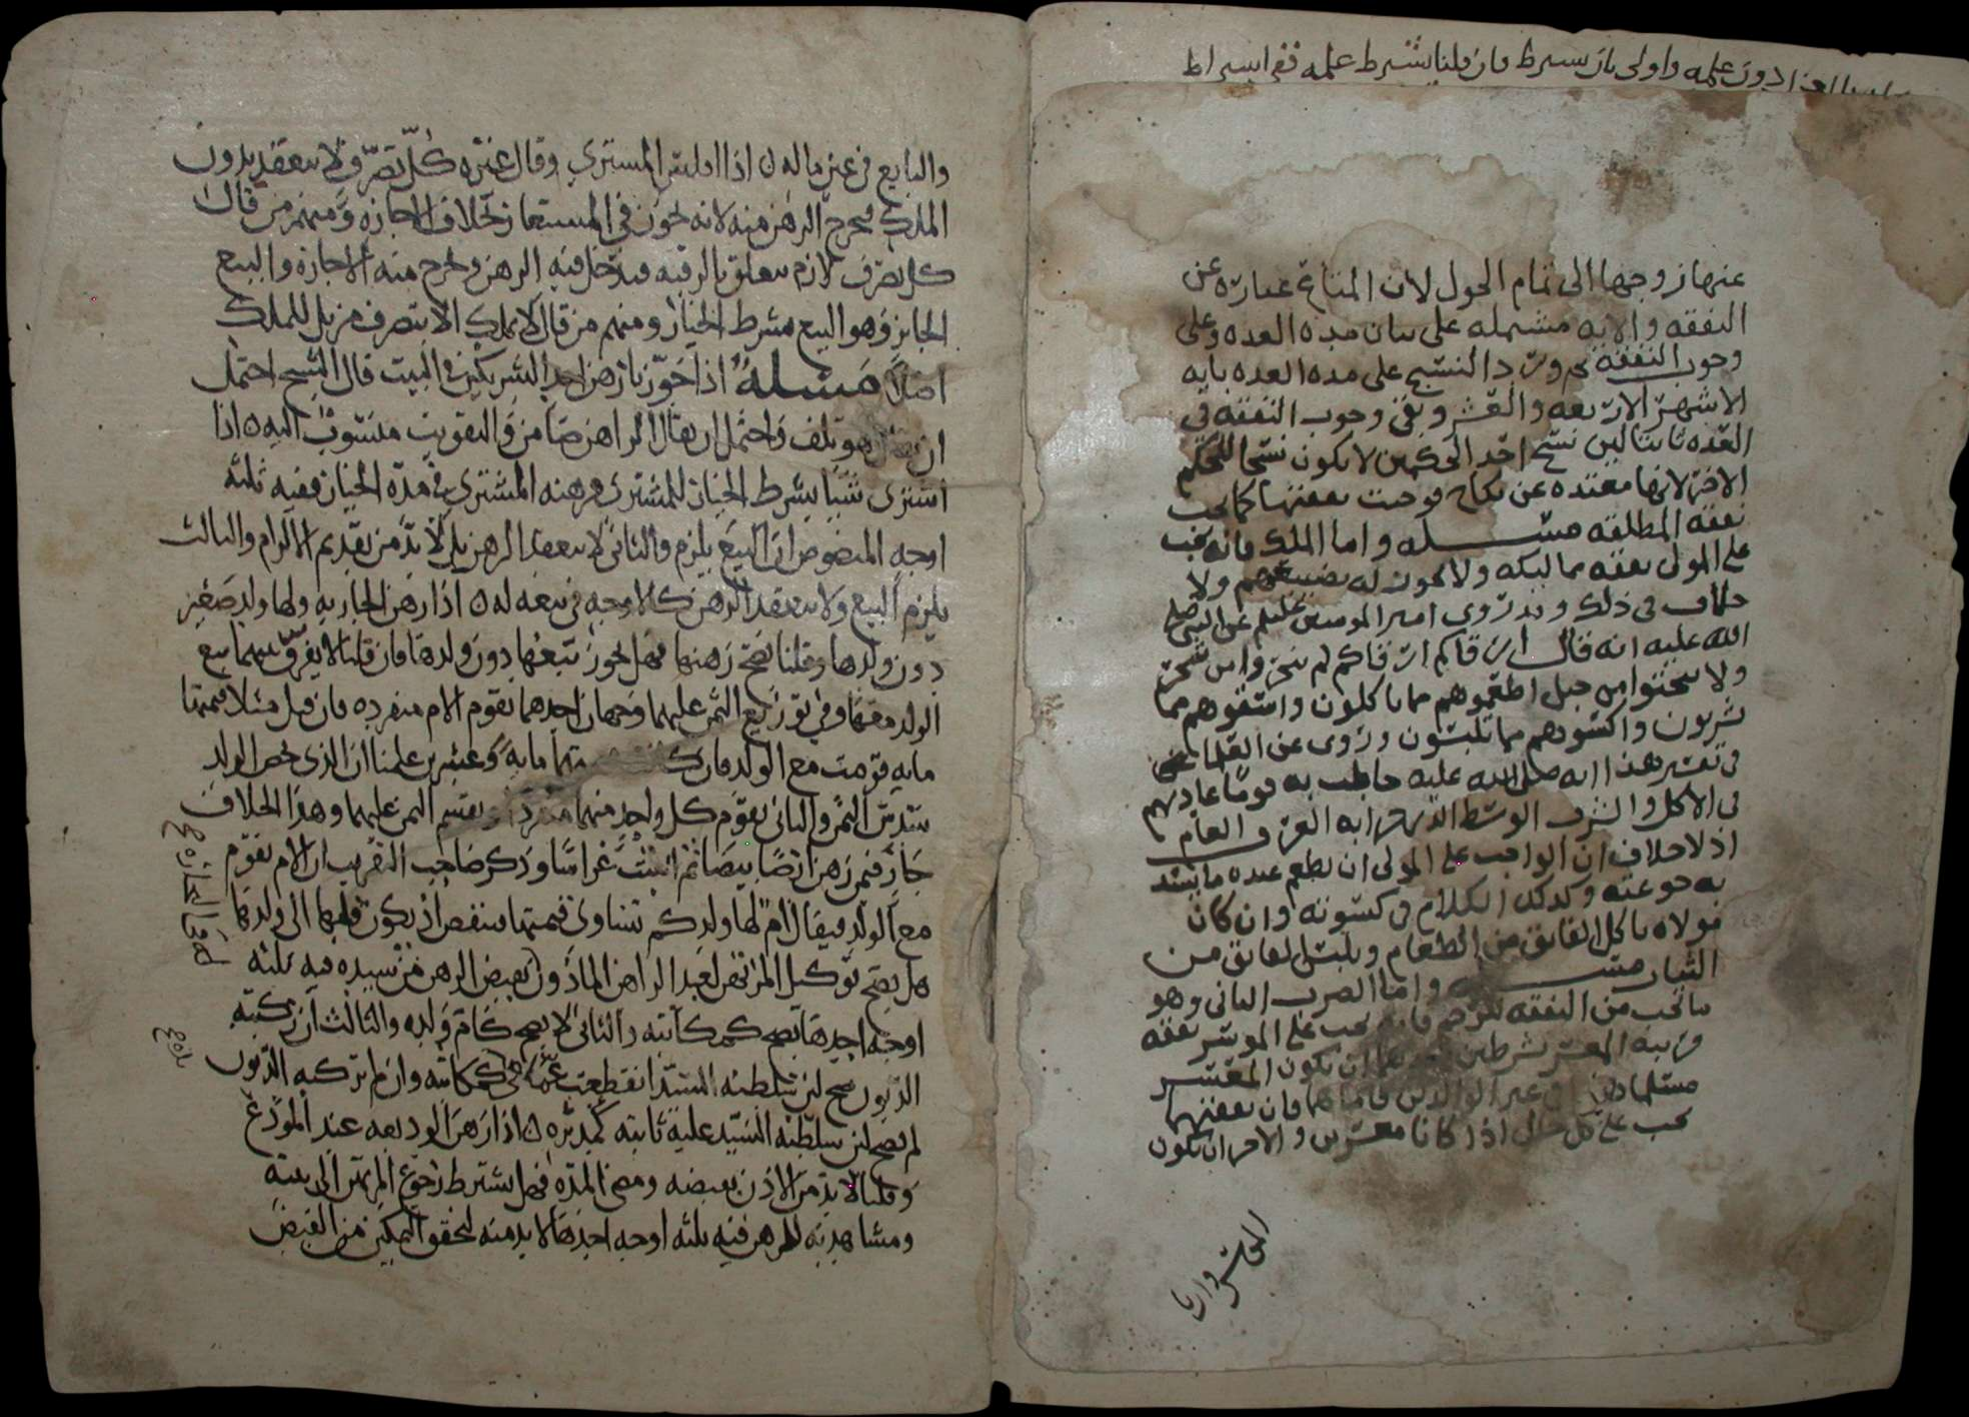 العقد دون علمه واولى بان يشترط فان قلنا يشترط علمه ففي اشتراط
عنها زوجها الى تمام الحول لان المتاع عباره عن
النفقه والايه مشتمله على بيان مده العده وعلى
وجوب النفقه ثم ورد النسخ على مده العده بايه
الاشهر الاربعه والعشر وبقى وجوب النفقه فى
العده ثابتا لان نسخ احد الحكمين لا يكون نسخا للحكم
الاخر لانها معتده عن نكاح فوجبت نفقتها كما يجب
نفقه المطلقه مسله واما الملك فانه يجب
على المولى نفقه مماليكه ولا يجوز له تضييعهم ولا
خلاف فى ذلك وقد روى امير المومنين عليلم عن النبى صلى
الله عليه انه قال ارقاكم ارقاكم لم ينجروا من شجر
ولا ينحتوا من جبل اطعموهم مما ياكلون واسقوهم مما
تشربون واكسوهم مما تلبسون وروى عن
فى تفسير هذا انه صلى الله عليه خاطب به قوما عادتهم
فى الاكل والشرب الوسط الذى جرا به العرف العام
اذ لا خلاف ان الواجب على المولى ان يطعم عبده ما يسد
به جوعته وكذلك الكلام فى كسوته وان كان
مولاه ياكل الفايق من الطعام ويلبس الفايق من
الثياب مسله واما الضرب الثانى وهو
ما يجب من النفقه للرحم فانه يجب على الموسر نفقه
قريبه المعسر بشرطين ان يكون المعسر
مسلما فى غير الوالدين فاماهما فان نفقتهما
يجب على كل حال اذا كانا معسرين والاخر ان يكون
والبايع فى عين ماله ن اذا افلس المشترى وقال غيره كل تصرف لا ينعقد بدون
الملك فيخرج الرهن منه لانه يجوز فى المستعار بخلاف الاجازه ومنهم من قال
كل تصرف لازم يتعلق بالرقبه فيدخل فيه الرهن ويخرج منه الاجازه والبيع
الجايز وهو البيع بشرط الخيار ومنهم من قال لا يملك الا بتصرف مزيل للملك
اصلا مسله اذا جوزنا رهن احد الشريكين فى البيت قال الشيخ احتمل
ان هو تلف واحتمل ان يقال الراهن ضامن والتفويت منسوب اليه ن اذا
اشترى شيا بشرط الخيار للمشترى فرهنه المشترى فى مدة الخيار ففيه ثلثه
اوجه المنصوص ان البيع يلزم والثانى لا ينعقد الرهن بل لا بد من تقديم الالزام والثالث
يلزم البيع ولا ينعقد الرهن كالاوجه فى بيعه له ن اذا رهن الجاريه ولها ولد صغير
دون ولدها وقلنا يصح رهنها فهل يجوز بيعها دون ولدها فان قلنا لا يفرق بينهما بيع
الولد معها وفى توزيع الثمن عليهما وجهان احدهما يقوم الام منفرده فان قيل مثلا قيمتها
مايه قومت مع الولد فان قيمتهما مايه وعشرين علمنا ان الذى يخص الولد
سدس الثمن والثانى يقوم كل واحد منهما منفردا ويقسم الثمن عليهما وهذا الخلاف
جار فيمن رهن ارضا بيضا ثم انبتت غراسا وذكر صاحب التقريب ان الام تقوم
مع الولد فيقال ام لها ولد كم تساوى قيمتها فينقص اذ يكون قلبها الى ولدها
هل يصح توكيل المرتهن لعبد الراهن الماذون بقبض الرهن من سيده فيه ثلثه
اوجه احدها يصح كمكاتبه والثانى لا يصح كام ولده والثالث ان ركبته
الديون صح لان سلطنه السيد انقطعت عما فى حكم كاتبه وان لم تركبه الديون
لم يصح لان سلطنه السيد عليه ثابته كمدبره ن اذا رهن الوديعه عند المودع
وقلنا لا بد من الاذن بقبضه ومضى المده فهل يشترط رجوع المرتهن الى بيته
ومشاهدته للرهن فيه ثلثه اوجه احدها لا بد منه لتحقق التمكين من القبض